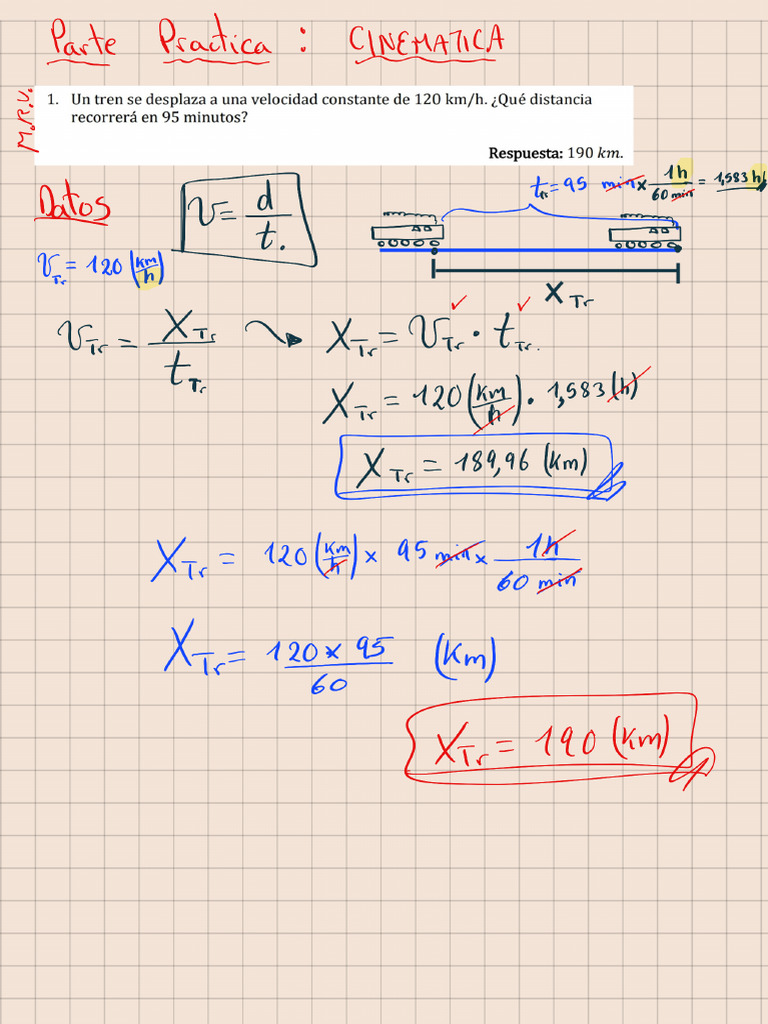 Parte Practica : CINEMATICA
M.R.U.
1. Un tren se desplaza a una velocidad constante de 120 km/h. ¿Qué distancia
recorrerá en 95 minutos?
Respuesta: 190 km.
Datos
V = d/t.
t_Tr = 95 min x 1h/60 min = 1,583 h
V_Tr = 120 (km/h)
X_Tr
V_Tr = X_Tr/t_Tr
X_Tr = V_Tr · t_Tr.
X_Tr = 120 (km/h) · 1,583 (h)
X_Tr = 189,96 (km)
X_Tr = 120 (km/h) x 95 min x 1h/60 min
X_Tr = 120 x 95/60 (Km)
X_Tr = 190 (Km)